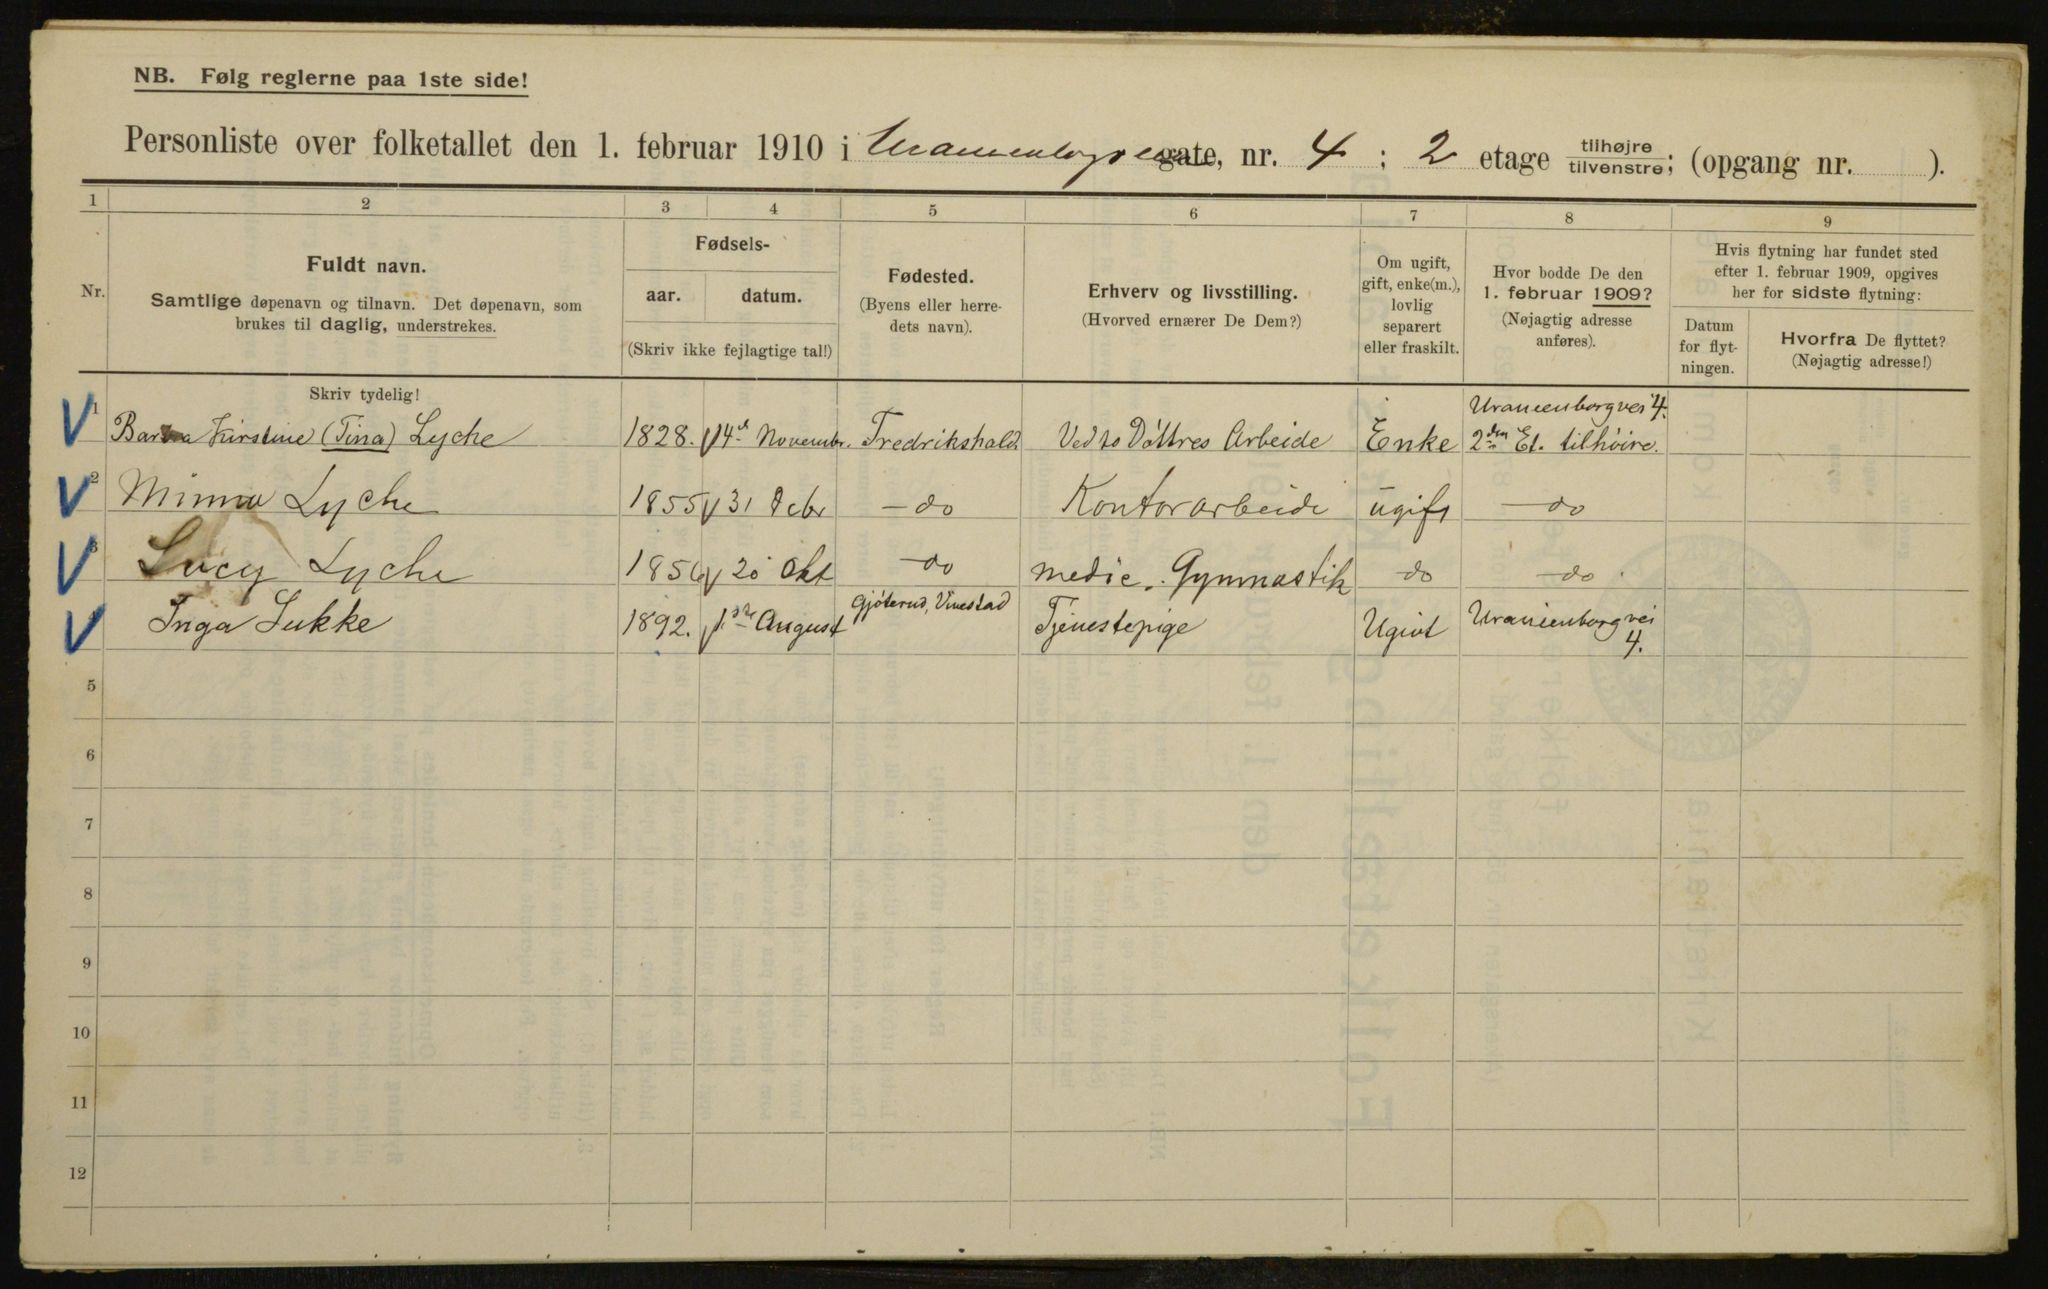 NB. Følg reglerne paa 1ste side!
Personliste over folketallet den 1. februar 1910 i gate, nr. 4 ; 2 etage tilhøjre tilvenstre; (opgang nr. ).
1 2 3 4 5 6 7 8 9
Nr.
Fuldt navn.
Samtlige døpenavn og tilnavn. Det døpenavn, som
brukes til daglig, understrekes.
Fødsels-
aar. datum.
(Skriv ikke fejlagtige tal!)
Fødested.
(Byens eller herre-
dets navn).
Erhverv og livsstilling.
(Hvorved ernærer De Dem?)
Om ugift,
gift, enke(m.),
lovlig
separert
eller fraskilt.
Hvor bodde De den
1. februar 1909?
(Nøjagtig adresse
anføres).
Hvis flytning har fundet sted
efter 1. februar 1909, opgives
her for sidste flytning:
Datum
for flyt-
ningen.
Hvorfra De flyttet?
(Nøjagtig adresse!)
Skriv tydelig!
Uranienborgvei 4.
1 Kirstine (Tina) Lyche 1828. 14de Novembr. Fredrikshald Ved to Döttres Arbeide Enke 2den Et. tilhöire.
2 Lyche 1855 31 - do Kontorarbeide ugift - do
3 Lucy Lyche 1856 20 Okt - do medic. Gymnastik - do - do
Inga Lukke 1892. 1ste August Tjenestepige Ugivt Uranienborgvei
4.
5
6
7
8
9
10
11
12